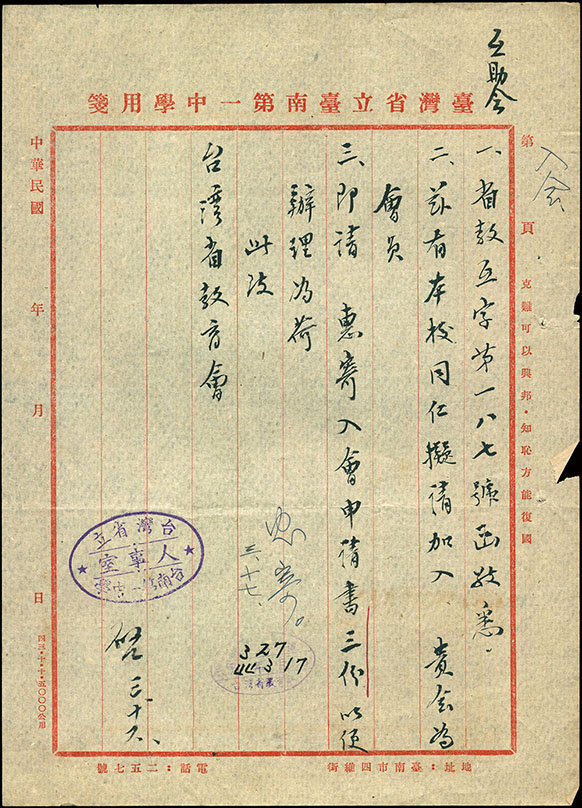 互助會
臺灣省立臺南第一中學用箋
第 頁
入会
克難可以興邦・知恥方能復國
一、省教互字第一八七號函敬悉。
二、茲有本校同仁擬請加入 貴会為
會員
三、即請 惠寄入會申請書三份以便
辦理為荷
此致
台湾省教育會
三、十七、
327
44 3 17
台灣省立
人事室
台南第一中學
啓 三、十六、
中華民國 年 月 日
四三・十・十・五〇〇〇公用
地址：臺南市四維街
電話：二五七號